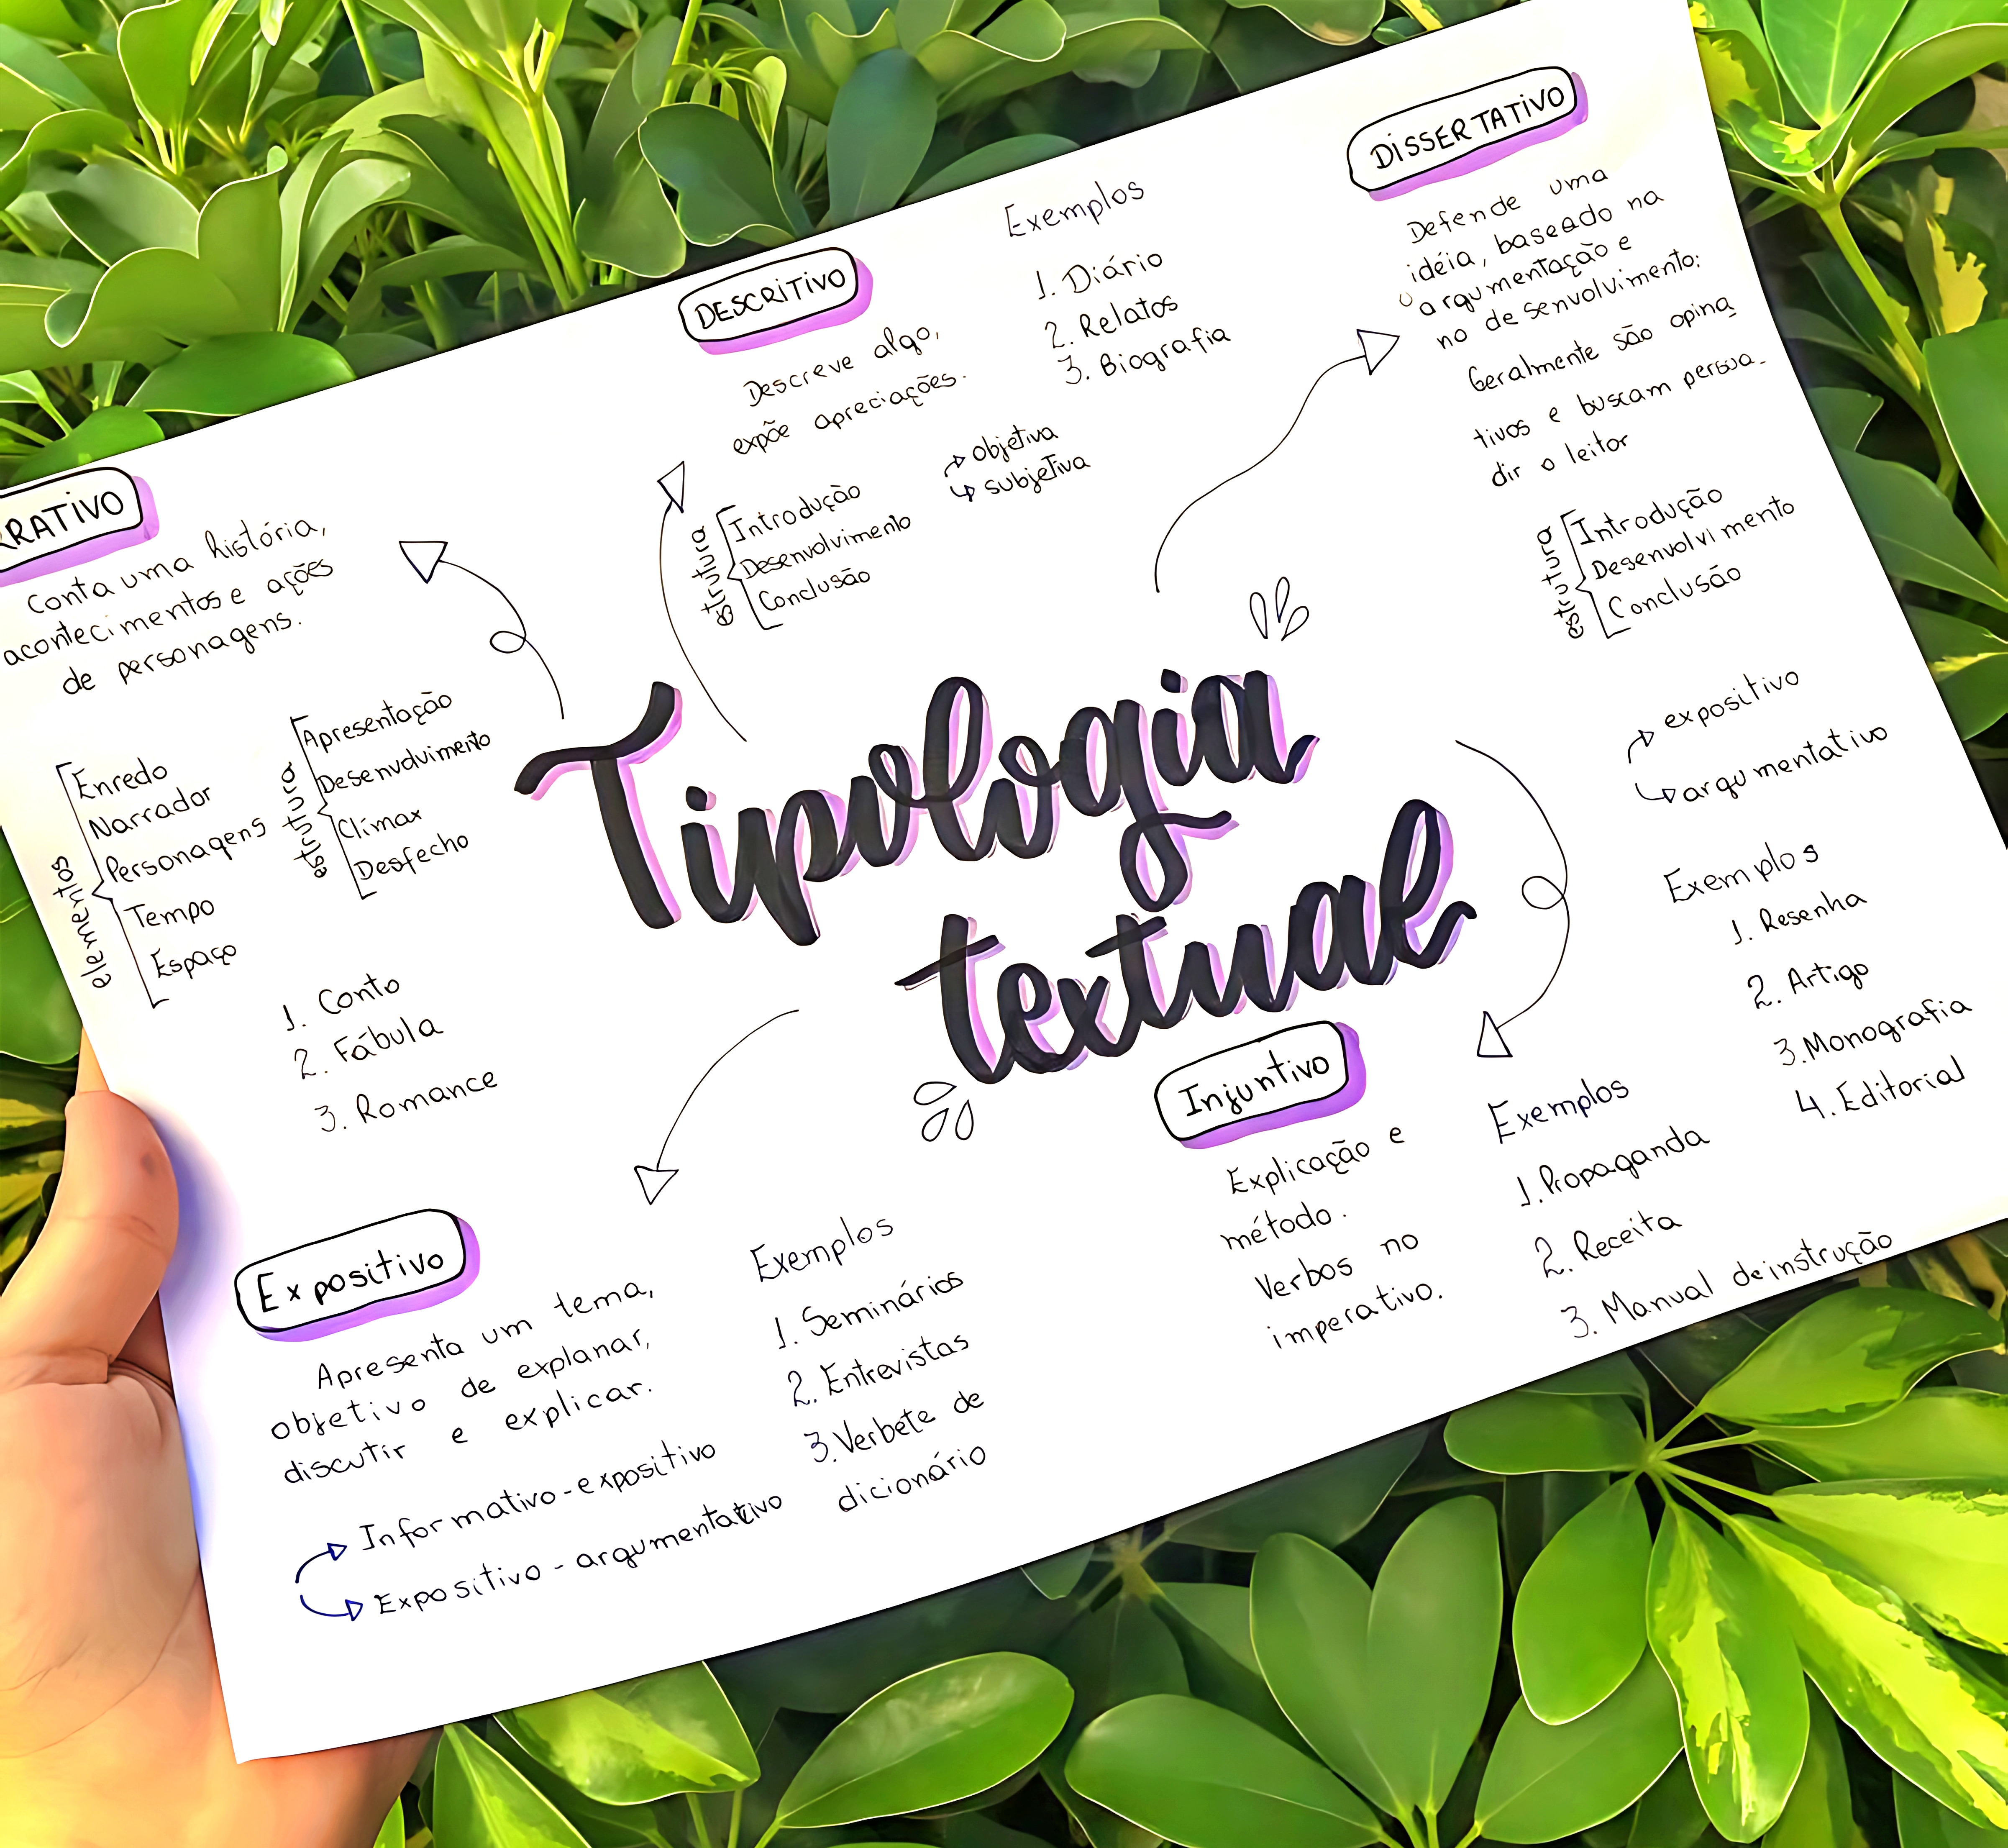 Tipologia
textual
RRATIVO
Conta uma história,
acontecimentos e ações
de personagens.
elementos
Enredo
Narrador
Personagens
Tempo
Espaço
estrutura
Apresentação
Desenvolvimento
Clímax
Desfecho
1. Conto
2. Fábula
3. Romance
DESCRITIVO
Descreve algo,
expõe apreciações.
estrutura
Introdução
Desenvolvimento
Conclusão
objetiva
subjetiva
Exemplos
1. Diário
2. Relatos
3. Biografia
DISSERTATIVO
Defende uma
idéia, baseado na
argumentação e
no desenvolvimento:
Geralmente são opina
tivos e buscam persua-
dir o leitor
estrutura
Introdução
Desenvolvimento
Conclusão
expositivo
argumentativo
Exemplos
1. Resenha
2. Artigo
3. Monografia
4. Editorial
Expositivo
Apresenta um tema,
objetivo de explanar,
discutir e explicar.
Informativo-expositivo
Expositivo-argumentativo
Exemplos
1. Seminários
2. Entrevistas
3. Verbete de
dicionário
Injuntivo
Explicação e
método.
Verbos no
imperativo.
Exemplos
1. Propaganda
2. Receita
3. Manual de instrução